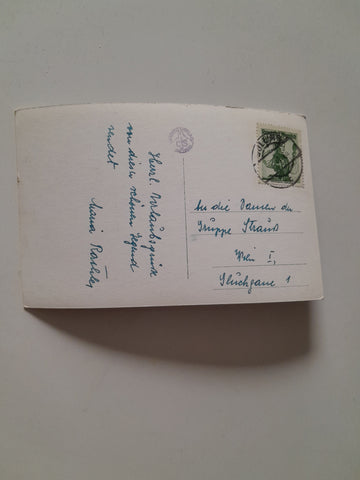 Herzl. Urlaubsgrüße
von dieser schönen Gegend
sendet
Maria
An die Damen der
Gruppe Strauß
Wien I,
Gluckgasse 1